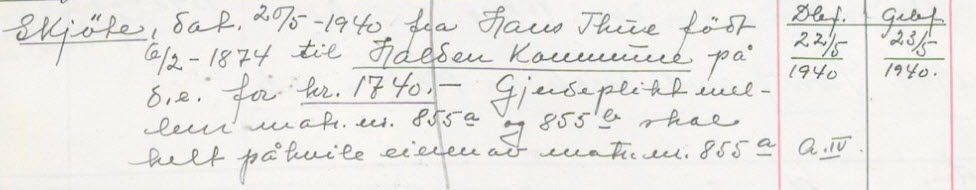 Skjöte, dat. 20/5-1940 fra Hans Thue födt
6/2-1874 til Halden Kommune på
d.e. for kr. 1740.- Gjerdeplikt mel-
lem matr. nr. 855a og 855b skal
helt påhvile eieren av matr. nr. 855a
Dbf. 22/5 1940
Grbf. 23/5 1940.
A. IV